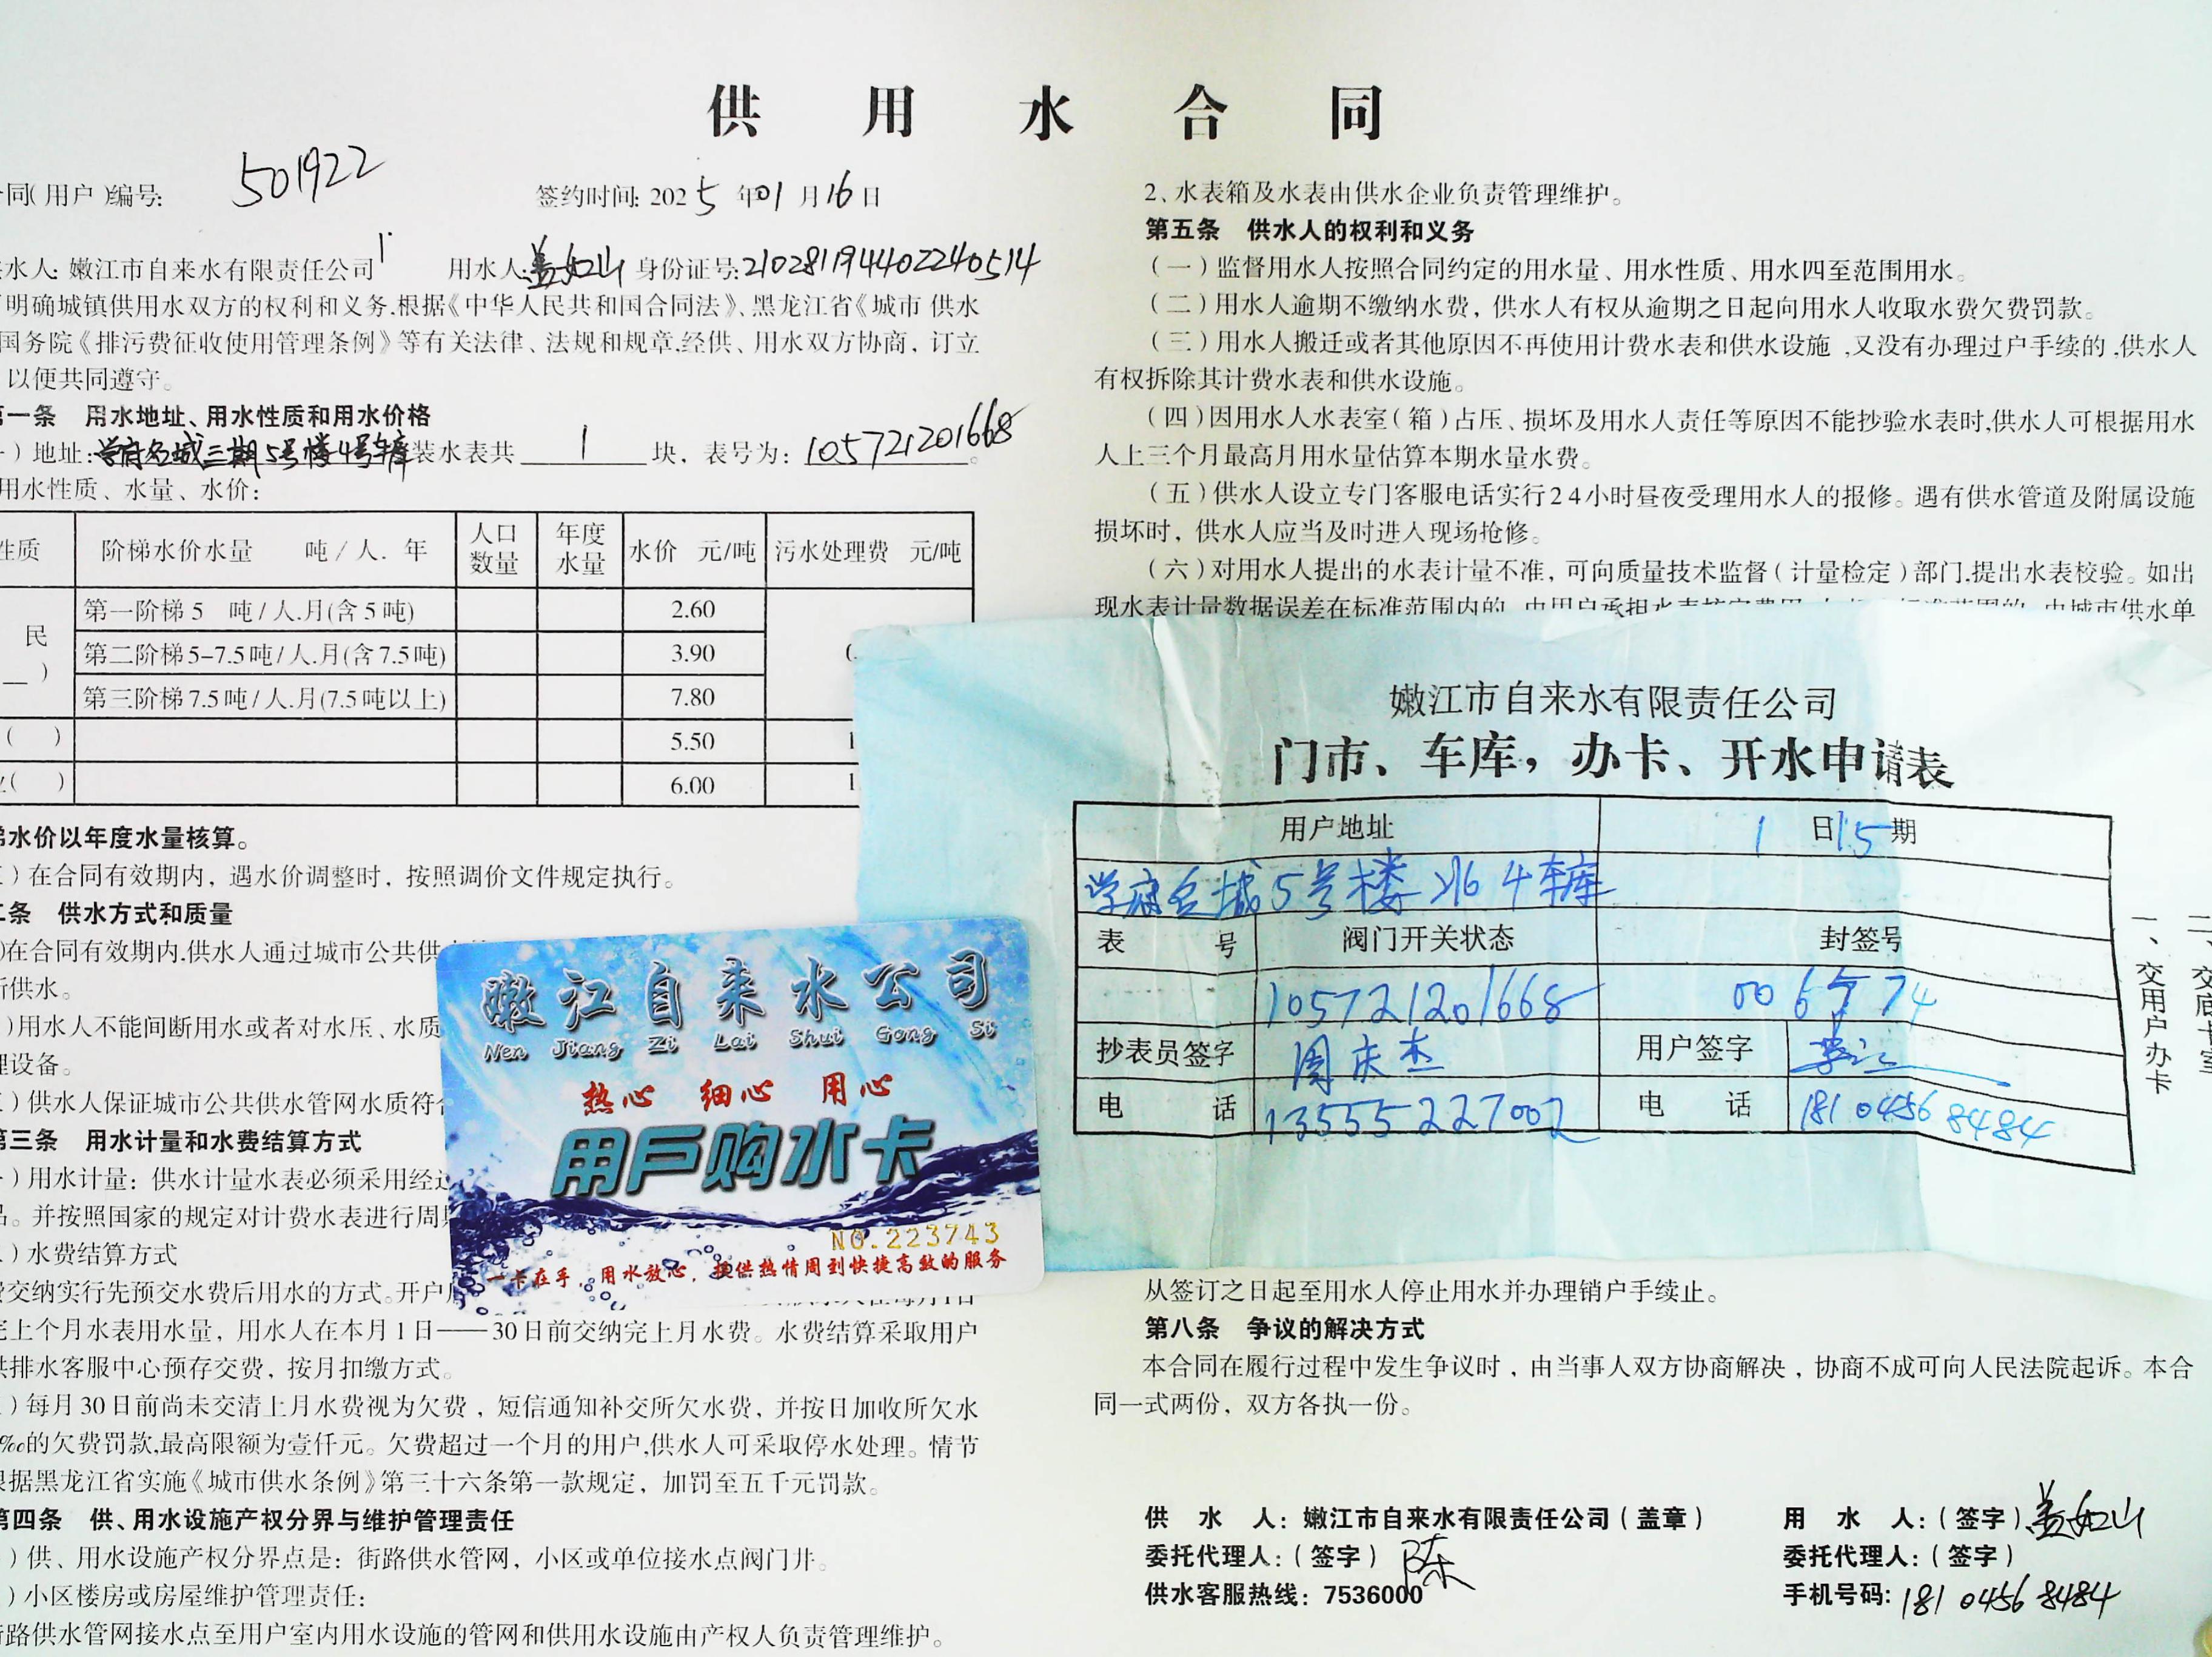 供用水合同
同(用户)编号: 501922 签约时间: 2025年01月16日
水人: 嫩江市自来水有限责任公司 用水人: 盖如山 身份证号: 210281194402240514
明确城镇供用水双方的权利和义务.根据《中华人民共和国合同法》、黑龙江省《城市 供水
国务院《排污费征收使用管理条例》等有关法律、法规和规章,经供、用水双方协商，订立
以便共同遵守。
第一条 用水地址、用水性质和用水价格
）地址: 学府名城三期5号楼4号车库装水表共 1 块，表号为: 105721201668。
用水性质、水量、水价:
性质 阶梯水价水量 吨/人.年 人口数量 年度水量 水价 元/吨 污水处理费 元/吨
民 第一阶梯5 吨/人.月(含5吨) 2.60
第二阶梯5-7.5吨/人.月(含7.5吨) 3.90
第三阶梯7.5吨/人.月(7.5吨以上) 7.80
( ) 5.50
( ) 6.00
水价以年度水量核算。
）在合同有效期内，遇水价调整时，按照调价文件规定执行。
条 供水方式和质量
)在合同有效期内,供水人通过城市公共供
供水。
)用水人不能间断用水或者对水压、水质
理设备。
）供水人保证城市公共供水管网水质符合
第三条 用水计量和水费结算方式
）用水计量: 供水计量水表必须采用经过
品。并按照国家的规定对计费水表进行周期
）水费结算方式
交纳实行先预交水费后用水的方式。开户
上个月水表用水量，用水人在本月1日——30日前交纳完上月水费。水费结算采取用户
供排水客服中心预存交费，按月扣缴方式。
）每月30日前尚未交清上月水费视为欠费，短信通知补交所欠水费，并按日加收所欠水
‰的欠费罚款,最高限额为壹仟元。欠费超过一个月的用户,供水人可采取停水处理。情节
根据黑龙江省实施《城市供水条例》第三十六条第一款规定，加罚至五千元罚款。
第四条 供、用水设施产权分界与维护管理责任
）供、用水设施产权分界点是: 街路供水管网，小区或单位接水点阀门井。
）小区楼房或房屋维护管理责任:
街路供水管网接水点至用户室内用水设施的管网和供用水设施由产权人负责管理维护。
2、水表箱及水表由供水企业负责管理维护。
第五条 供水人的权利和义务
（一）监督用水人按照合同约定的用水量、用水性质、用水四至范围用水。
（二）用水人逾期不缴纳水费，供水人有权从逾期之日起向用水人收取水费欠费罚款。
（三）用水人搬迁或者其他原因不再使用计费水表和供水设施,又没有办理过户手续的,供水人
有权拆除其计费水表和供水设施。
（四）因用水人水表室（箱）占压、损坏及用水人责任等原因不能抄验水表时,供水人可根据用水
人上三个月最高月用水量估算本期水量水费。
（五）供水人设立专门客服电话实行24小时昼夜受理用水人的报修。遇有供水管道及附属设施
损坏时，供水人应当及时进入现场抢修。
（六）对用水人提出的水表计量不准，可向质量技术监督（计量检定）部门,提出水表校验。如出
现水表计量数据误差在标准范围内的，由用户承担水表
城市供水单
嫩江市自来水有限责任公司
门市、车库，办卡、开水申请表
用户地址 1 日15期
学府名城5号楼北4车库
表号 阀门开关状态 封签号
105721201668
抄表员签字 周庆杰 用户签字
电话 13555227002 电话 18104568484
一、交用户办卡
二、交底卡室
嫩江自来水公司
Nen Jiang Zi Lai Shui Gong Si
热心 细心 用心
用户购水卡
NO.223743
一卡在手，用水放心，提供热情周到快捷高效的服务
从签订之日起至用水人停止用水并办理销户手续止。
第八条 争议的解决方式
本合同在履行过程中发生争议时，由当事人双方协商解决，协商不成可向人民法院起诉。本合
同一式两份，双方各执一份。
供水人: 嫩江市自来水有限责任公司（盖章） 用水人:（签字）盖如山
委托代理人:（签字）陈 委托代理人:（签字）
供水客服热线: 7536000 手机号码: 18104568484